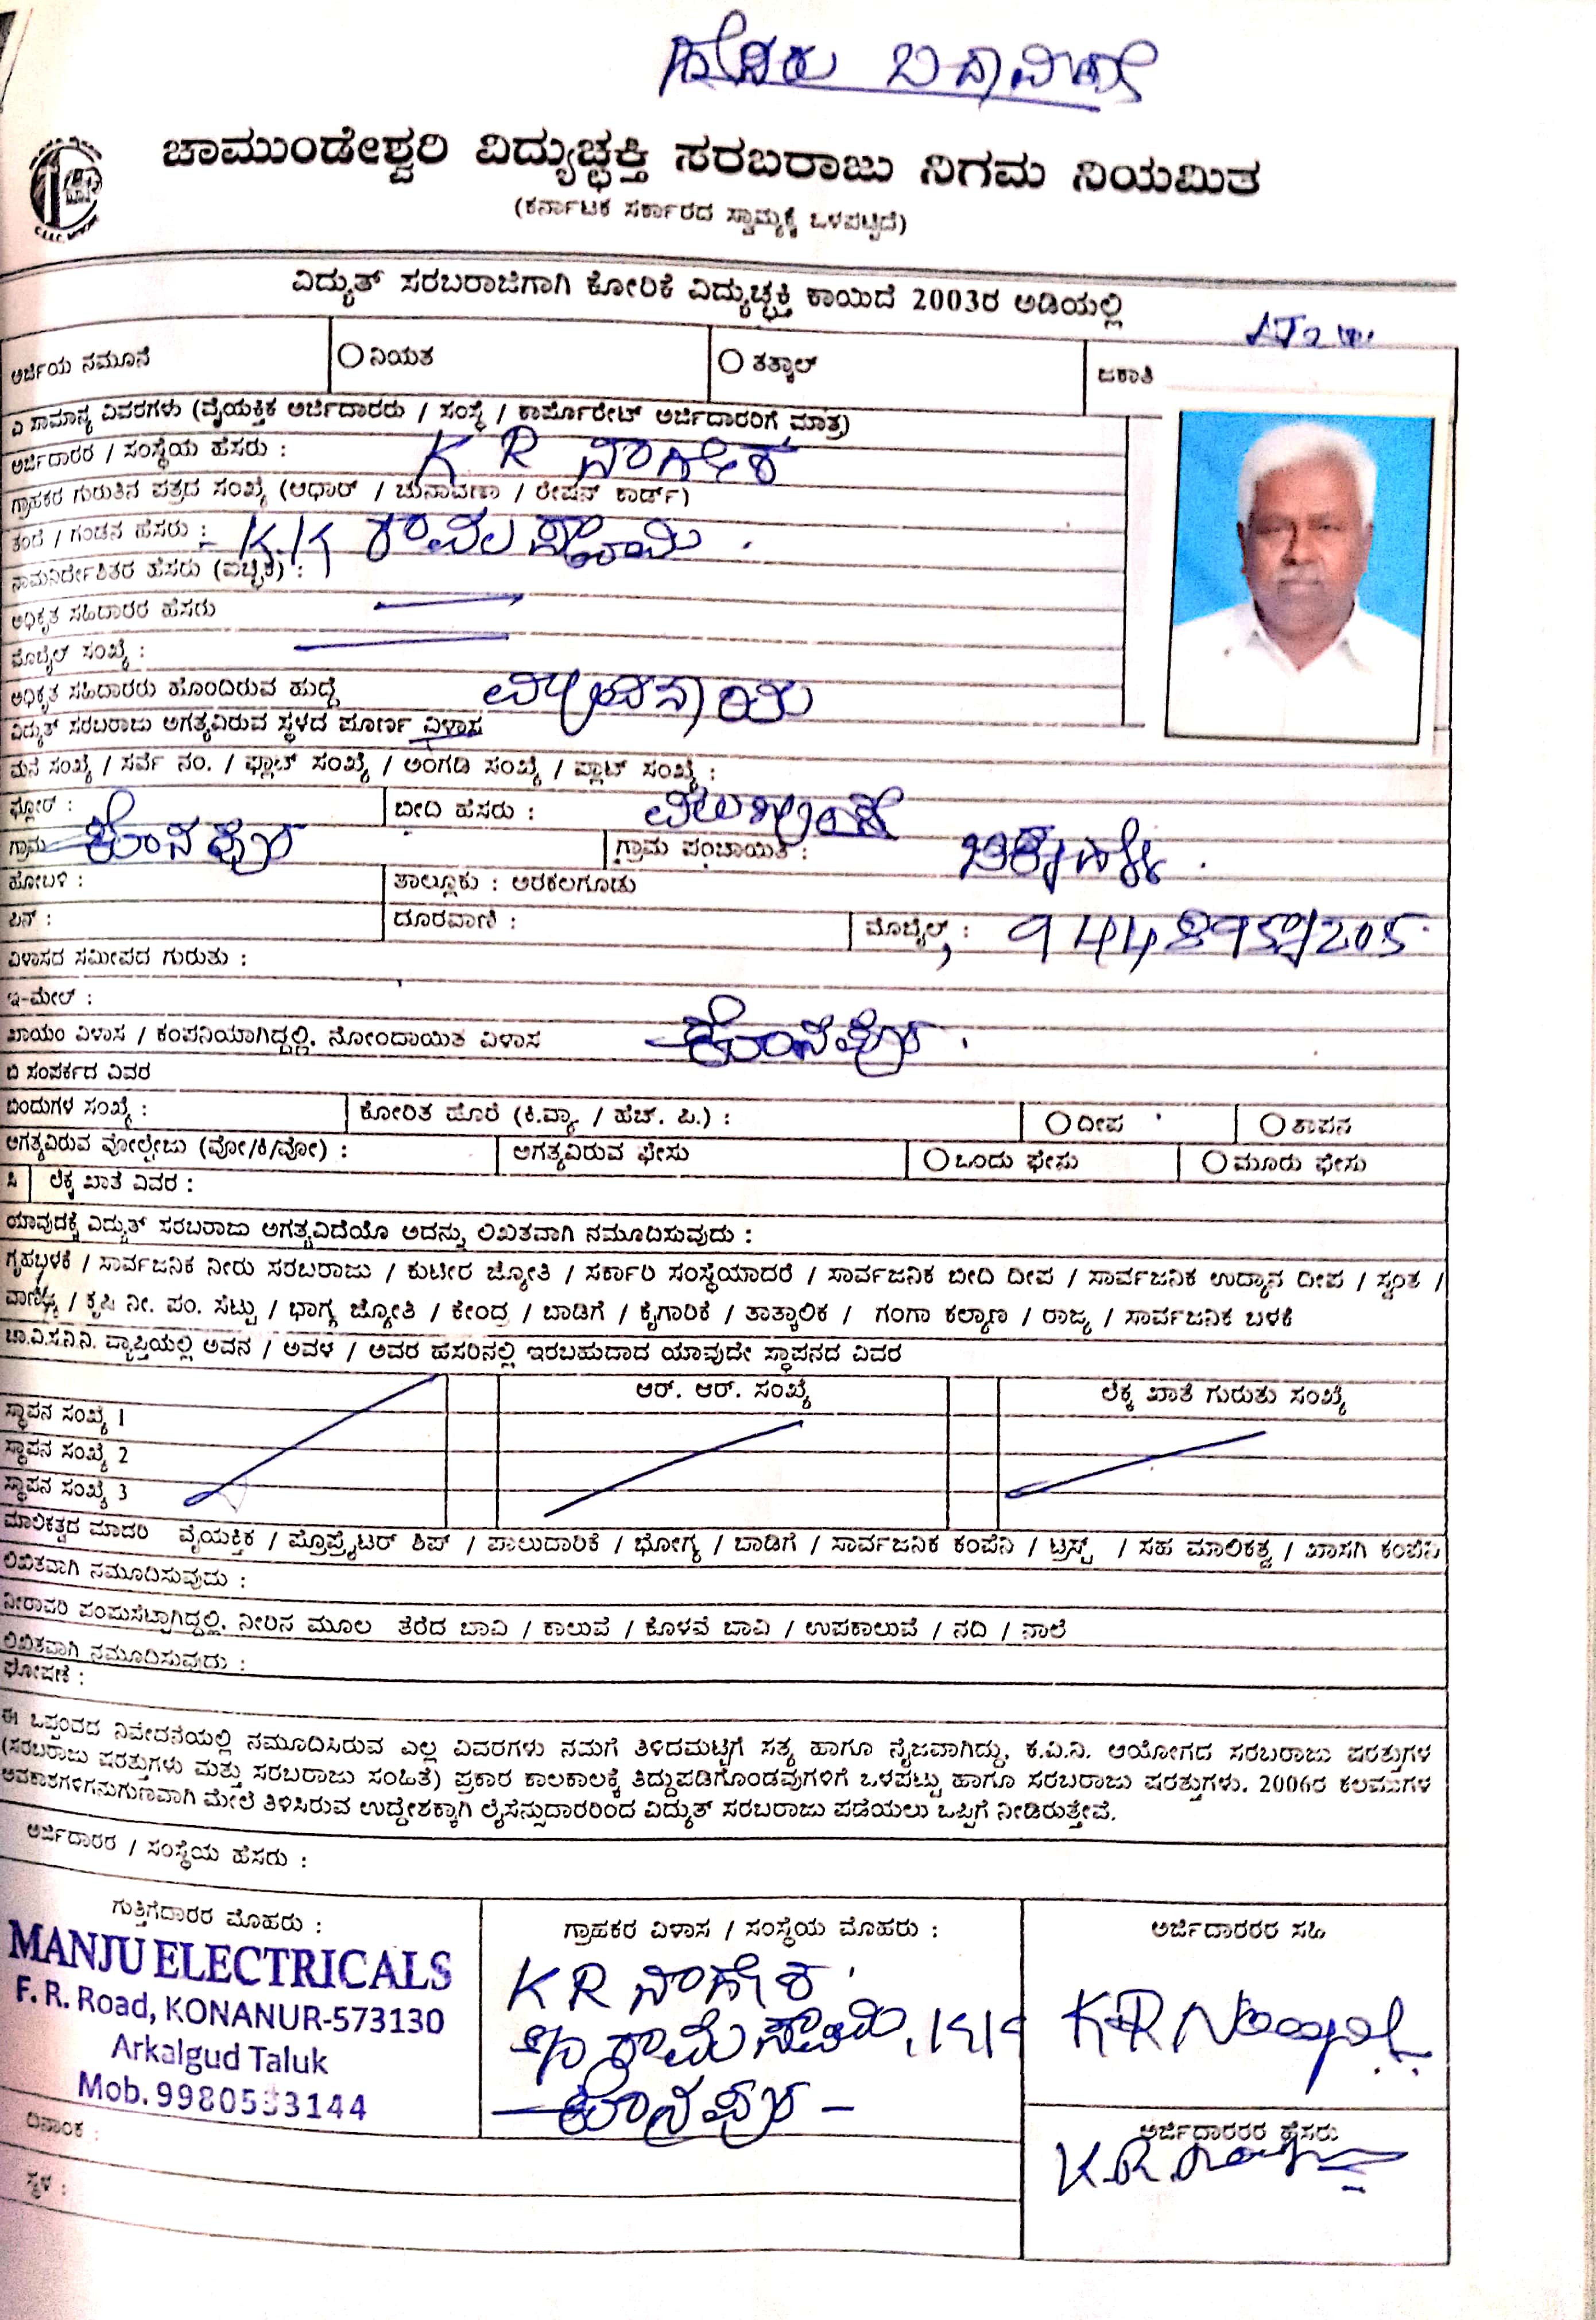 ಹೆಸರು ಬದಲಾವಣೆ
ಚಾಮುಂಡೇಶ್ವರಿ ವಿದ್ಯುಚ್ಛಕ್ತಿ ಸರಬರಾಜು ನಿಗಮ ನಿಯಮಿತ
(ಕರ್ನಾಟಕ ಸರ್ಕಾರದ ಸ್ವಾಮ್ಯಕ್ಕೆ ಒಳಪಟ್ಟಿದೆ)
ವಿದ್ಯುತ್ ಸರಬರಾಜಿಗಾಗಿ ಕೋರಿಕೆ ವಿದ್ಯುಚ್ಛಕ್ತಿ ಕಾಯಿದೆ 2003ರ ಅಡಿಯಲ್ಲಿ
ಅರ್ಜಿಯ ನಮೂನೆ ನಿಯತ ತತ್ಕಾಲ್ ಜಕಾತಿ
ಎ ಸಾಮಾನ್ಯ ವಿವರಗಳು (ವೈಯಕ್ತಿಕ ಅರ್ಜಿದಾರರು / ಸಂಸ್ಥೆ / ಕಾರ್ಪೊರೇಟ್ ಅರ್ಜಿದಾರರಿಗೆ ಮಾತ್ರ)
ಅರ್ಜಿದಾರರ / ಸಂಸ್ಥೆಯ ಹೆಸರು : K R ನಾಗೇಶ
ಗ್ರಾಹಕರ ಗುರುತಿನ ಪತ್ರದ ಸಂಖ್ಯೆ (ಆಧಾರ್ / ಚುನಾವಣಾ / ರೇಷನ್ ಕಾರ್ಡ್)
ತಂದೆ / ಗಂಡನ ಹೆಸರು : K.K
ನಾಮನಿರ್ದೇಶಿತರ ಹೆಸರು (ಐಚ್ಛಿಕ) :
ಅಧಿಕೃತ ಸಹಿದಾರರ ಹೆಸರು
ಮೊಬೈಲ್ ಸಂಖ್ಯೆ :
ಅಧಿಕೃತ ಸಹಿದಾರರು ಹೊಂದಿರುವ ಹುದ್ದೆ
ವಿದ್ಯುತ್ ಸರಬರಾಜು ಅಗತ್ಯವಿರುವ ಸ್ಥಳದ ಪೂರ್ಣ ವಿಳಾಸ
ಮನೆ ಸಂಖ್ಯೆ / ಸರ್ವೆ ನಂ. / ಫ್ಲಾಟ್ ಸಂಖ್ಯೆ / ಅಂಗಡಿ ಸಂಖ್ಯೆ / ಪ್ಲಾಟ್ ಸಂಖ್ಯೆ :
ಫ್ಲೋರ್ : ಬೀದಿ ಹೆಸರು :
ಗ್ರಾಮ ಗ್ರಾಮ ಪಂಚಾಯಿತಿ :
ಹೋಬಳಿ : ತಾಲ್ಲೂಕು : ಅರಕಲಗೂಡು
ಪಿನ್ : ದೂರವಾಣಿ : ಮೊಬೈಲ್ :
ವಿಳಾಸದ ಸಮೀಪದ ಗುರುತು :
ಇ-ಮೇಲ್ :
ಖಾಯಂ ವಿಳಾಸ / ಕಂಪನಿಯಾಗಿದ್ದಲ್ಲಿ, ನೋಂದಾಯಿತ ವಿಳಾಸ
ಬಿ ಸಂಪರ್ಕದ ವಿವರ
ಬಿಂದುಗಳ ಸಂಖ್ಯೆ : ಕೋರಿತ ಹೊರೆ (ಕಿ.ವ್ಯಾ. / ಹೆಚ್. ಪಿ.) : ದೀಪ ತಾಪನ
ಅಗತ್ಯವಿರುವ ವೋಲ್ಟೇಜು (ವೋ/ಕಿ/ವೋ) : ಅಗತ್ಯವಿರುವ ಫೇಸು ಒಂದು ಫೇಸು ಮೂರು ಫೇಸು
ಸಿ ಲೆಕ್ಕ ಖಾತೆ ವಿವರ :
ಯಾವುದಕ್ಕೆ ವಿದ್ಯುತ್ ಸರಬರಾಜು ಅಗತ್ಯವಿದೆಯೊ ಅದನ್ನು ಲಿಖಿತವಾಗಿ ನಮೂದಿಸುವುದು :
ಗೃಹಬಳಕೆ / ಸಾರ್ವಜನಿಕ ನೀರು ಸರಬರಾಜು / ಕುಟೀರ ಜ್ಯೋತಿ / ಸರ್ಕಾರಿ ಸಂಸ್ಥೆಯಾದರೆ / ಸಾರ್ವಜನಿಕ ಬೀದಿ ದೀಪ / ಸಾರ್ವಜನಿಕ ಉದ್ಯಾನ ದೀಪ / ಸ್ವಂತ /
ವಾಣಿಜ್ಯ / ಕೃಷಿ ನೀ. ಪಂ. ಸೆಟ್ಟು / ಭಾಗ್ಯ ಜ್ಯೋತಿ / ಕೇಂದ್ರ / ಬಾಡಿಗೆ / ಕೈಗಾರಿಕೆ / ತಾತ್ಕಾಲಿಕ / ಗಂಗಾ ಕಲ್ಯಾಣ / ರಾಜ್ಯ / ಸಾರ್ವಜನಿಕ ಬಳಕೆ
ಚಾ.ವಿ.ಸ.ನಿ.ನಿ. ವ್ಯಾಪ್ತಿಯಲ್ಲಿ ಅವನ / ಅವಳ / ಅವರ ಹೆಸರಿನಲ್ಲಿ ಇರಬಹುದಾದ ಯಾವುದೇ ಸ್ಥಾಪನದ ವಿವರ
ಆರ್. ಆರ್. ಸಂಖ್ಯೆ ಲೆಕ್ಕ ಖಾತೆ ಗುರುತು ಸಂಖ್ಯೆ
ಸ್ಥಾಪನ ಸಂಖ್ಯೆ 1
ಸ್ಥಾಪನ ಸಂಖ್ಯೆ 2
ಸ್ಥಾಪನ ಸಂಖ್ಯೆ 3
ಮಾಲಿಕತ್ವದ ಮಾದರಿ ವೈಯಕ್ತಿಕ / ಪ್ರೊಪ್ರೈಟರ್ ಶಿಪ್ / ಪಾಲುದಾರಿಕೆ / ಭೋಗ್ಯ / ಬಾಡಿಗೆ / ಸಾರ್ವಜನಿಕ ಕಂಪೆನಿ / ಟ್ರಸ್ಟ್ / ಸಹ ಮಾಲಿಕತ್ವ / ಖಾಸಗಿ ಕಂಪೆನಿ
ಲಿಖಿತವಾಗಿ ನಮೂದಿಸುವುದು :
ನೀರಾವರಿ ಪಂಪುಸೆಟ್ಟಾಗಿದ್ದಲ್ಲಿ, ನೀರಿನ ಮೂಲ ತೆರೆದ ಬಾವಿ / ಕಾಲುವೆ / ಕೊಳವೆ ಬಾವಿ / ಉಪಕಾಲುವೆ / ನದಿ / ನಾಲೆ
ಲಿಖಿತವಾಗಿ ನಮೂದಿಸುವುದು :
ಘೋಷಣೆ :
ಈ ಒಪ್ಪಂದದ ನಿವೇದನೆಯಲ್ಲಿ ನಮೂದಿಸಿರುವ ಎಲ್ಲ ವಿವರಗಳು ನಮಗೆ ತಿಳಿದಮಟ್ಟಿಗೆ ಸತ್ಯ ಹಾಗೂ ನೈಜವಾಗಿದ್ದು, ಕ.ವಿ.ನಿ. ಆಯೋಗದ ಸರಬರಾಜು ಷರತ್ತುಗಳ
(ಸರಬರಾಜು ಷರತ್ತುಗಳು ಮತ್ತು ಸರಬರಾಜು ಸಂಹಿತೆ) ಪ್ರಕಾರ ಕಾಲಕಾಲಕ್ಕೆ ತಿದ್ದುಪಡಿಗೊಂಡವುಗಳಿಗೆ ಒಳಪಟ್ಟು ಹಾಗೂ ಸರಬರಾಜು ಷರತ್ತುಗಳು, 2006ರ ಕಲಮುಗಳ
ಅವಕಾಶಗಳಿಗನುಗುಣವಾಗಿ ಮೇಲೆ ತಿಳಿಸಿರುವ ಉದ್ದೇಶಕ್ಕಾಗಿ ಲೈಸೆನ್ಸುದಾರರಿಂದ ವಿದ್ಯುತ್ ಸರಬರಾಜು ಪಡೆಯಲು ಒಪ್ಪಿಗೆ ನೀಡಿರುತ್ತೇವೆ.
ಅರ್ಜಿದಾರರ / ಸಂಸ್ಥೆಯ ಹೆಸರು :
ಗುತ್ತಿಗೆದಾರರ ಮೊಹರು :
MANJU ELECTRICALS
F. R. Road, KONANUR-573130
Arkalgud Taluk
Mob. 9980533144
ದಿನಾಂಕ :
ಸ್ಥಳ :
ಗ್ರಾಹಕರ ವಿಳಾಸ / ಸಂಸ್ಥೆಯ ಮೊಹರು :
K R ನಾಗೇಶ
ಅರ್ಜಿದಾರರರ ಸಹಿ
ಅರ್ಜಿದಾರರರ ಹೆಸರು